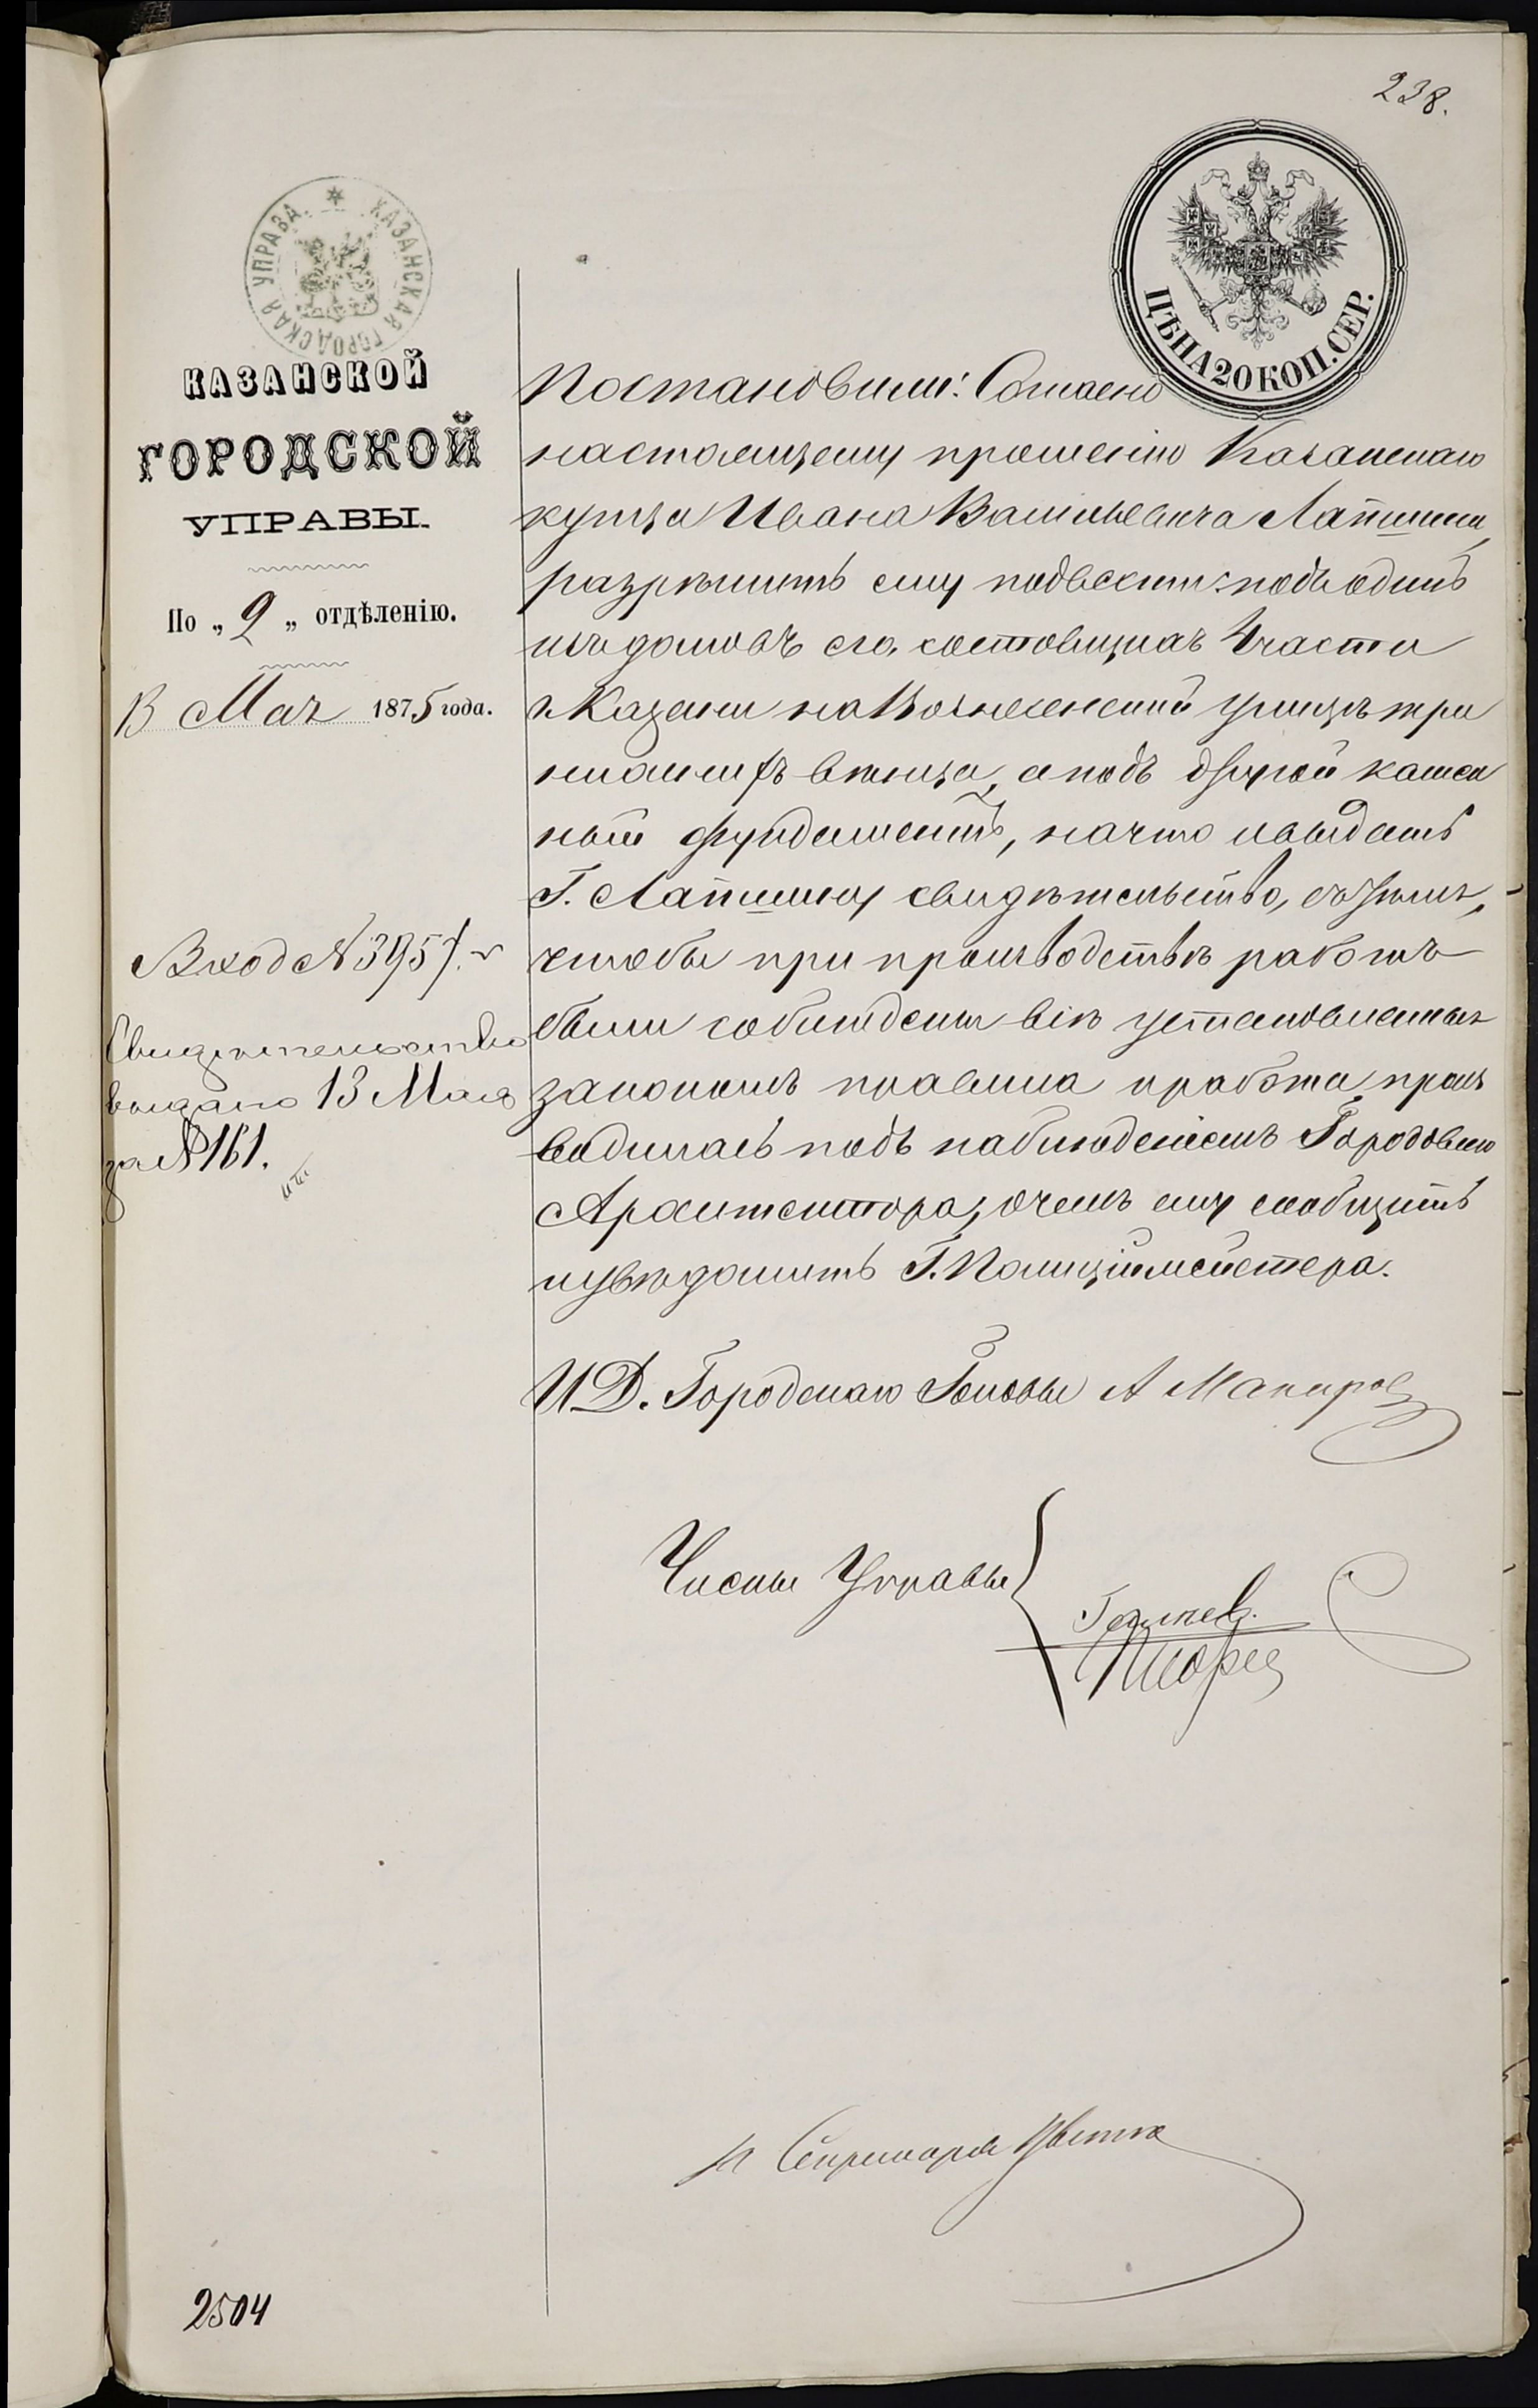 238.
КАЗАНСКАЯ ГОРОДСКАЯ УПРАВА.
ЦѢНА 20 КОП. СЕР.
КАЗАНСКОЙ
ГОРОДСКОЙ
УПРАВЫ.
По „2„ отдѣленію.
13 Мая 1875 года.
Вход №3957.
Свидѣтельство
выдано 13 Мая
за №161.
Постановили: Согласно
настоящему прошенію Казанскаго
купца Ивана Васильевича Лапшина,
разрѣшить ему подвести: подъ одинъ
изъ домовъ его, состоящихъ части
г. Казани на Вознесенской улицѣ три
вѣнца, а подъ другой камен
ный фундаментъ, на что и выдать
Г. Лапшину свидѣтельство, съ тѣмъ,
чтобы при производствѣ работъ
были соблюдены всѣ установленныя
закономъ правила и работа произ
водилась подъ наблюденіемъ Городоваго
Архитектора, о чемъ ему сообщить
и увѣдомить Г. Полиціймейстера.
И.Д. Городскаго Головы А
Члены Управы
Секретаря
2504